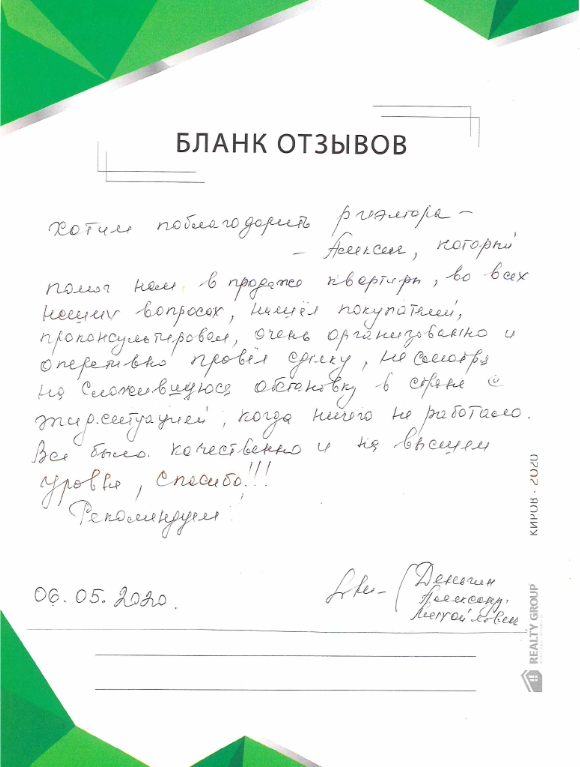 БЛАНК ОТЗЫВОВ
Хотим поблагодарить риэлтора –
– Алексея, который
помог нам в продаже квартиры, во всех
наших вопросах, нашёл покупателей,
проконсультировал, очень организованно и
оперативно провёл сделку, не смотря
на сложившуюся обстановку в стране с
эпид.ситуацией, когда ничего не работало.
Все было качественно и на высшем
уровне, Спасибо!!!
Рекомендуем!
06.05.2020.
Александр.
Михайлович
КИРОВ · 2020
REALTY GROUP